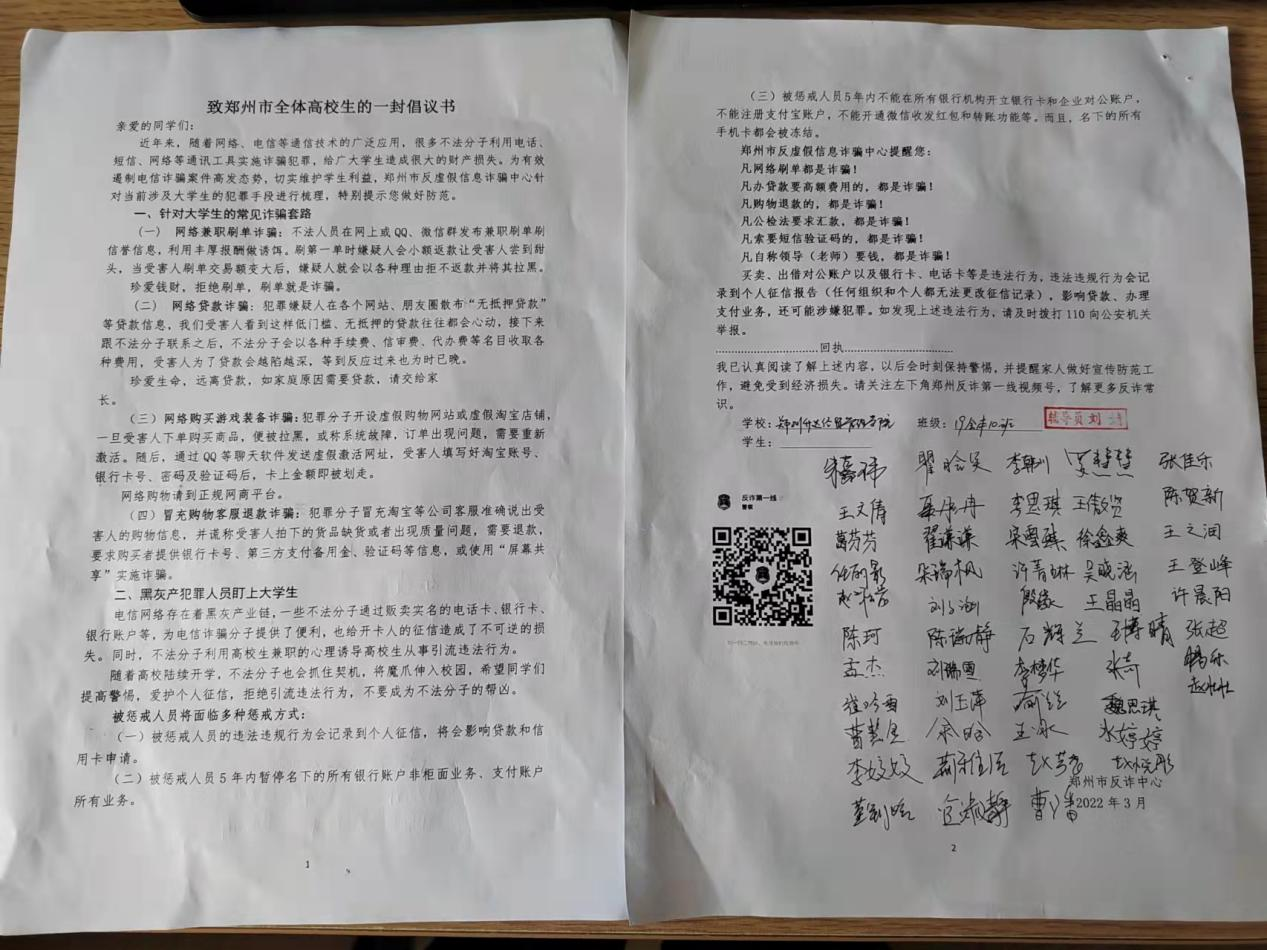 致郑州市全体高校生的一封倡议书
亲爱的同学们：
近年来，随着网络、电信等通信技术的广泛应用，很多不法分子利用电话、
短信、网络等通讯工具实施诈骗犯罪，给广大学生造成很大的财产损失。为有效
遏制电信诈骗案件高发态势，切实维护学生利益，郑州市反虚假信息诈骗中心针
对当前涉及大学生的犯罪手段进行梳理，特别提示您做好防范。
一、针对大学生的常见诈骗套路
（一） 网络兼职刷单诈骗：不法人员在网上或QQ、微信群发布兼职刷单刷
信誉信息，利用丰厚报酬做诱饵。刷第一单时嫌疑人会小额返款让受害人尝到甜
头，当受害人刷单交易额变大后，嫌疑人就会以各种理由拒不返款并将其拉黑。
珍爱钱财，拒绝刷单，刷单就是诈骗。
（二） 网络贷款诈骗：犯罪嫌疑人在各个网站、朋友圈散布“无抵押贷款”
等贷款信息，我们受害人看到这样低门槛、无抵押的贷款往往都会心动，接下来
跟不法分子联系之后，不法分子会以各种手续费、信审费、代办费等名目收取各
种费用，受害人为了贷款会越陷越深，等到反应过来也为时已晚。
珍爱生命，远离贷款，如家庭原因需要贷款，请交给家
长。
（三）网络购买游戏装备诈骗：犯罪分子开设虚假购物网站或虚假淘宝店铺，
一旦受害人下单购买商品，便被拉黑，或称系统故障，订单出现问题，需要重新
激活。随后，通过QQ等聊天软件发送虚假激活网址，受害人填写好淘宝账号、
银行卡号、密码及验证码后，卡上金额即被划走。
网络购物请到正规网商平台。
（四）冒充购物客服退款诈骗：犯罪分子冒充淘宝等公司客服准确说出受
害人的购物信息，并谎称受害人拍下的货品缺货或者出现质量问题，需要退款，
要求购买者提供银行卡号、第三方支付备用金、验证码等信息，或使用“屏幕共
享”实施诈骗。
二、黑灰产犯罪人员盯上大学生
电信网络存在着黑灰产业链，一些不法分子通过贩卖实名的电话卡、银行卡、
银行账户等，为电信诈骗分子提供了便利，也给开卡人的征信造成了不可逆的损
失。同时，不法分子利用高校生兼职的心理诱导高校生从事引流违法行为。
随着高校陆续开学，不法分子也会抓住契机，将魔爪伸入校园，希望同学们
提高警惕，爱护个人征信，拒绝引流违法行为，不要成为不法分子的帮凶。
被惩戒人员将面临多种惩戒方式：
（一）被惩戒人员的违法违规行为会记录到个人征信，将会影响贷款和信
用卡申请。
（二）被惩戒人员5年内暂停名下的所有银行账户非柜面业务、支付账户
所有业务。
1
（三）被惩戒人员5年内不能在所有银行机构开立银行卡和企业对公账户，
不能注册支付宝账户，不能开通微信收发红包和转账功能等。而且，名下的所有
手机卡都会被冻结。
郑州市反虚假信息诈骗中心提醒您：
凡网络刷单都是诈骗！
凡办贷款要高额费用的，都是诈骗！
凡购物退款的，都是诈骗！
凡公检法要求汇款，都是诈骗！
凡索要短信验证码的，都是诈骗！
凡自称领导（老师）要钱，都是诈骗！
买卖、出借对公账户以及银行卡、电话卡等是违法行为，违法违规行为会记
录到个人征信报告（任何组织和个人都无法更改征信记录），影响贷款、办理
支付业务，还可能涉嫌犯罪。如发现上述违法行为，请及时拨打110向公安机关
举报。
回执
我已认真阅读了解上述内容，以后会时刻保持警惕，并提醒家人做好宣传防范工
作，避免受到经济损失。请关注左下角郑州反诈第一线视频号，了解更多反诈常
识。
学校：郑州升达经贸管理学院 班级：19金本10班 辅导员刘
学生：
李韩州 张佳乐
反诈第一线
警察
王文倩 李思琪 陈贺新
葛芳芳 翟谦谦 徐鑫爽 王之润
许菁琳 吴晓涵 王登峰
王晶晶 许晨阳
陈珂 陈淑静 石辉兰 王博晴 张超
孟杰 刘瑞恩 李梦华 张奇
刘玉萍 魏思琪
王冰 张婷婷
李姣姣
郑州市反诈中心
2022年3月
2